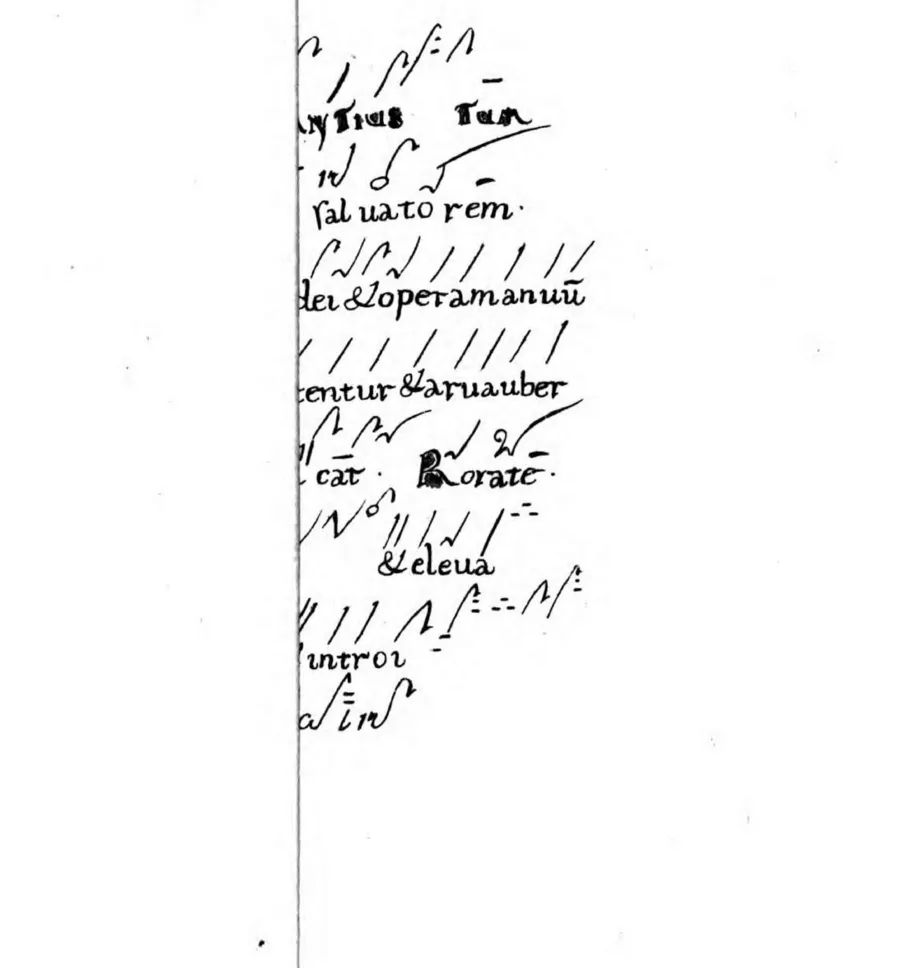 saluatōrem̄·
dei &operamanuū
entur &aruauber
cat̄ · Roratē·
&eleua
introi